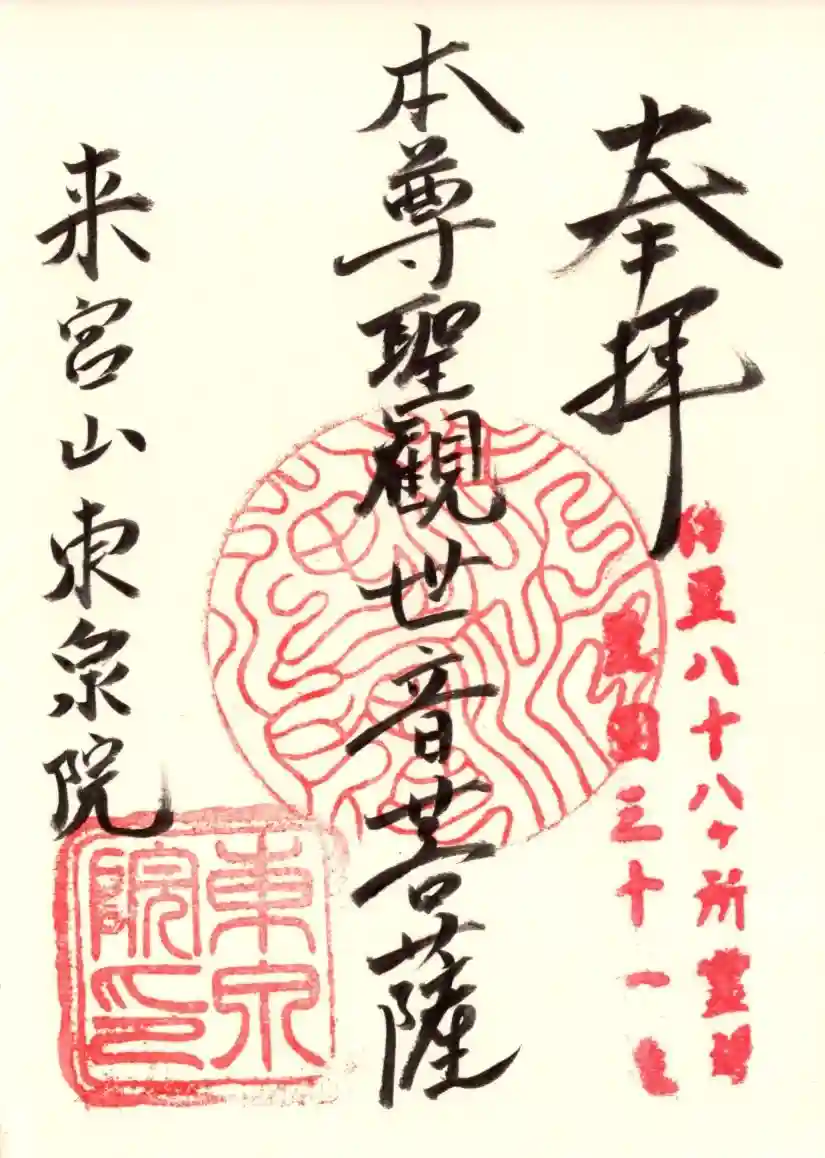 奉拝
伊豆八十八ヶ所霊場
第三十一番
本尊聖観世音菩薩
来宮山東泉院
東泉院印